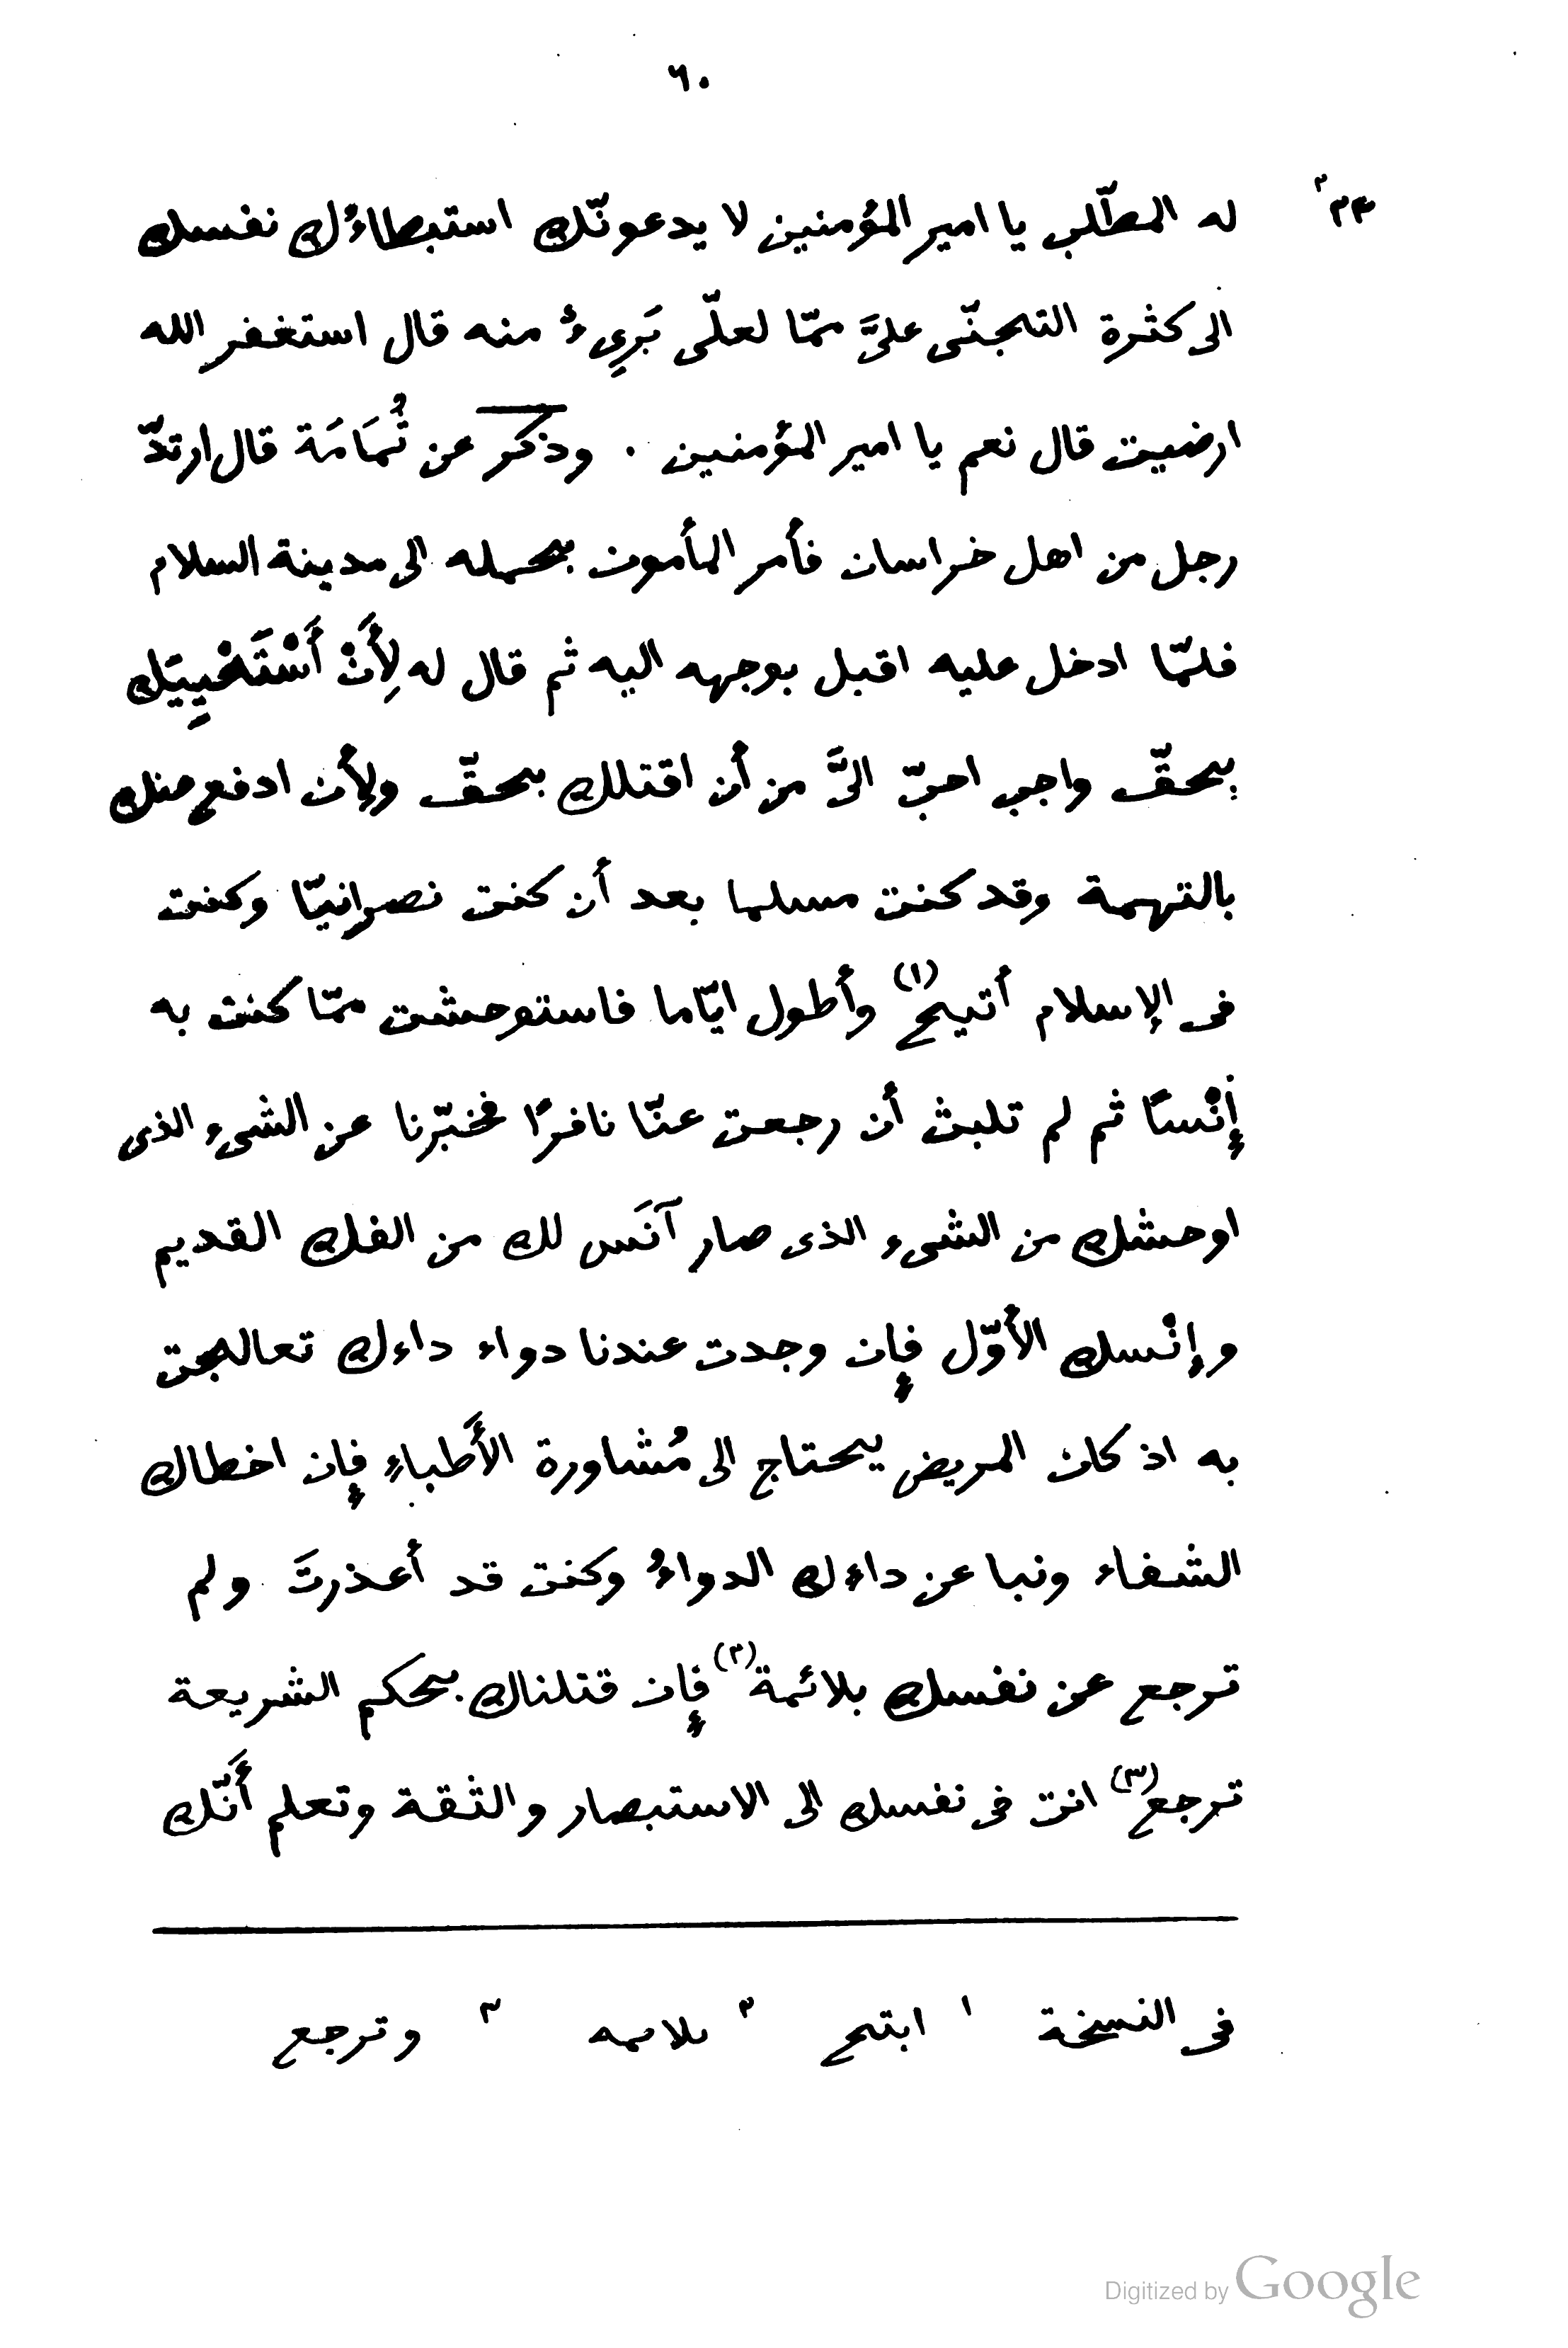 ٦٠
له المطّلب يا امير المؤمنين لا يدعونّك استبطاءُك نفسك
الى كثرة التجنّى علىَّ ممّا لعلّى بَرِىءٌ منه قال استغفر الله
ارضيت قال نعم يا امير المؤمنين . وذكر عن ثُمَامَة قال ارتدّ
رجل من اهل خراسان فأمر المأمون بحمله الى مدينة السلام
فلمّا ادخل عليه اقبل بوجهه اليه ثم قال له لِأَنْ أَسْتَحْيِيَك
بحقّ واجب احبّ الىَّ من أن اقتلك بحقّ ولأن ادفع عنك
بالتهمة وقد كنت مسلما بعد أن كنت نصرانيّا وكنت
فى الإسلام أتيح (١) وأطول ايّاما فاستوحشت ممّا كنت به
إنْسًا ثم لم تلبث أن رجعت عنّا نافرًا فخبّرنا عن الشىء الذى
اوحشك من الشىء الذى صار آنَس لك من الفك القديم
وإنْسك الأوّل فإن وجدت عندنا دواء داءك تعالجت
به اذ كان المريض يحتاج الى مُشاورة الأَطباءِ فإن اخطاك
الشفاء ونبا عن داءك الدواءُ وكنت قد أعذرتَ ولم
ترجع عن نفسك بلائمة (٢) فإن قتلناك بحكم الشريعة
ترجع (٣) انت فى نفسك الى الاستبصار والثقة وتعلم أَنّك
فى النسخة ١ ابتح ٢ بلايمه ٣ وترجع
Digitized by Google